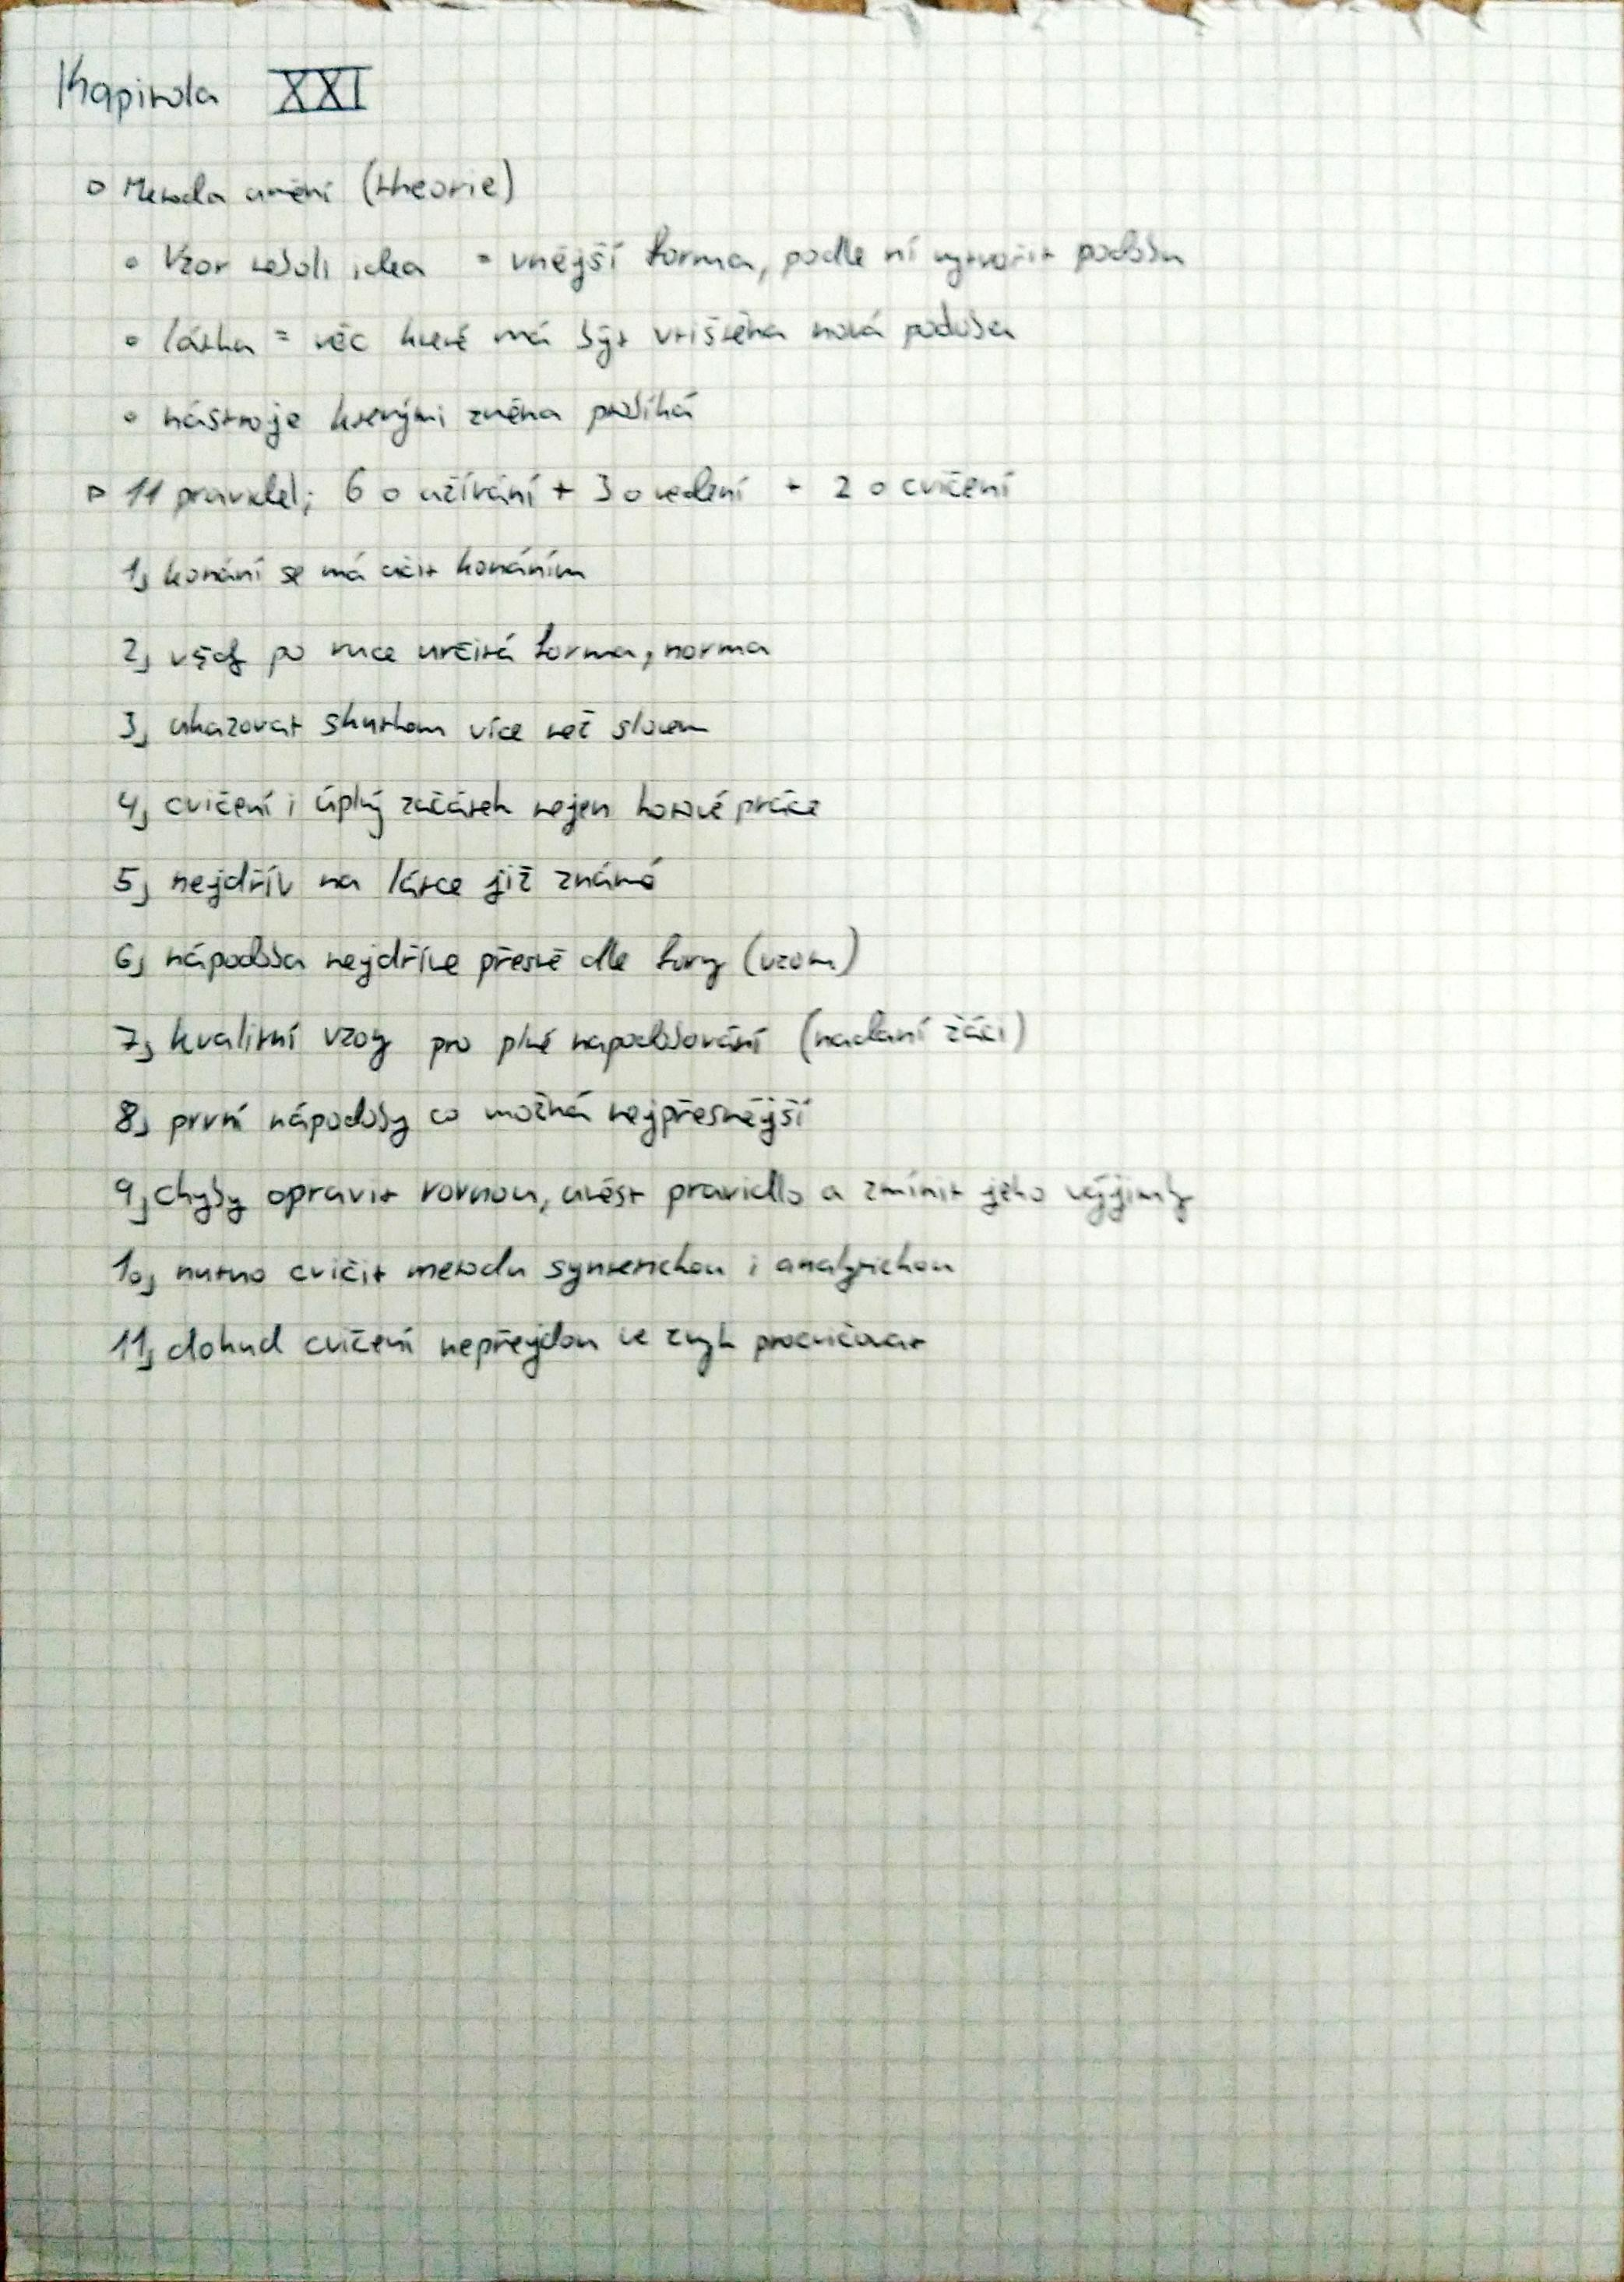 Kapitola XXI
▫ Metoda umění (theorie)
• Vzor neboli idea = vnější forma, podle ní vytvořit podobu
• látka = věc které má být vtištěna nová podoba
• nástroje kterými změna probíhá
▹ 11 pravidel; 6 o užívání + 3 o vedení + 2 o cvičení
1, konání se má učit konáním
2, vždy po ruce určitá forma, norma
3, ukazovat skutkem více než slovem
4, cvičení i úplný začátek nejen hotové práce
5, nejdřív na látce již známé
6, nápodoba nejdříve přesně dle formy (vzoru)
7, kvalitní vzory pro plné napodobování (nadaní žáci)
8, první nápodoby co možná nejpřesnější
9, chyby opravit rovnou, uvést pravidlo a zmínit jeho výjimky
10, nutno cvičit metodu syntetickou i analytickou
11, dokud cvičení nepřejdou ve zvyk procvičovat